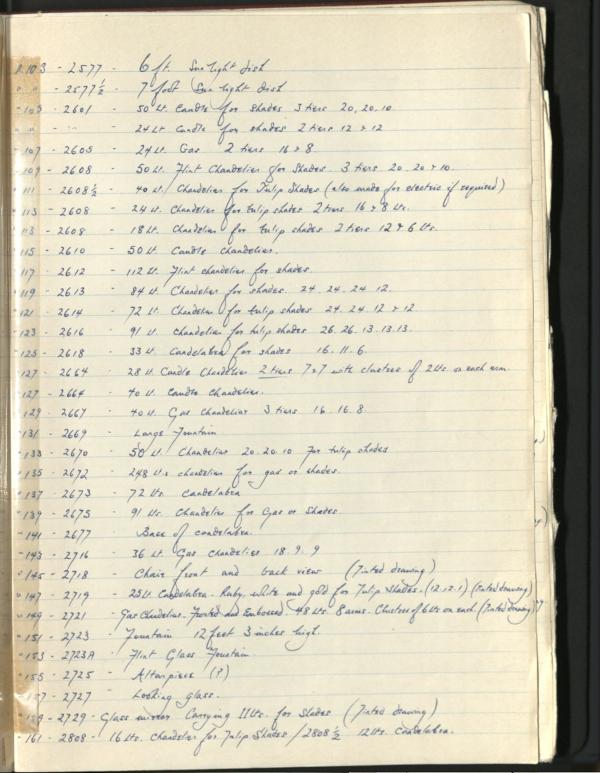 P.103 - 2577 - 6 ft Sun light dish
" " - 2577½ - 7 foot Sun light dish
" 105 - 2601 - 50 Lt. Candle for shades 3 tiers 20, 20, 10
" " - " - 24 Lt Candle for shades 2 tiers 12 & 12
" 107 - 2605 - 24 Lt. Gas 2 tiers 16 & 8
" 109 - 2608 - 50 Lt. Flint Chandelier for Shades. 3 tiers 20. 20 & 10.
" 111 - 2608½ - 40 Lt. Chandelier for Tulip Shades (also made for electric if required)
" 113 - 2608 - 24 Lt. Chandelier for tulip shades 2 tiers 16 & 8 Lts.
" 113 - 2608 - 18 Lt. Chandelier for tulip shades 2 tiers 12 & 6 Lts.
" 115 - 2610 - 50 Lt. Candle chandelier.
" 117 - 2612 - 112 Lt. Flint chandelier for shades.
" 119 - 2613 - 84 Lt. Chandelier for shades. 24. 24. 24. 12.
" 121 - 2614 - 72 Lt. Chandelier for tulip shades 24. 24. 12 & 12
" 123 - 2616 - 91 Lt. Chandelier for tulip shades 26. 26. 13. 13. 13.
" 125 - 2618 - 33 Lt. Candelabra for shades 16. 11. 6.
" 127 - 2664 - 28 Lt. Candle Chandelier 2 tiers 7 & 7 with clusters of 2 Lts. on each arm.
" 127 - 2664 - 40 Lt. Candle Chandelier.
" 129 - 2667 - 40 Lt. Gas Chandelier 3 tiers 16. 16. 8.
" 131 - 2669 - Large Fountain
" 133 - 2670 - 50 Lt. Chandelier 20. 20. 10 for tulip shades
" 135 - 2672 - 248 Lts chandelier for gas or shades.
" 137 - 2673 - 72 Lts. Candelabra
" 139 - 2675 - 91 Lts. Chandelier for Gas or Shades
" 141 - 2677 - Base of candelabra.
" 143 - 2716 - 36 Lt. Gas Chandelier 18. 9. 9
" 145 - 2718 - Chair front and back view (Tinted drawing)
" 147 - 2719 - 25 Lt. Candelabra. Ruby, white and gold for Tulip Shades. (12.12.1) (tinted drawing)
" 149 - 2721 - Gas Chandelier. Frosted and Embossed. 48 Lts. 8 arms. Clusters of 6 Lts on each (Tinted drawing)
" 151 - 2723 - Fountain 12 feet 3 inches high.
" 153 - 2723A - Flint Glass Fountain.
" 155 - 2725 - Alterpiece (?)
" 157 - 2727 - Looking glass.
" 159 - 2729 - Glass mirror Carrying 11 Lts. for Shades (Tinted drawing)
" 161 - 2808 - 16 Lts. Chandelier for Tulip Shades / 2808½ 12 Lts. Candelabra.